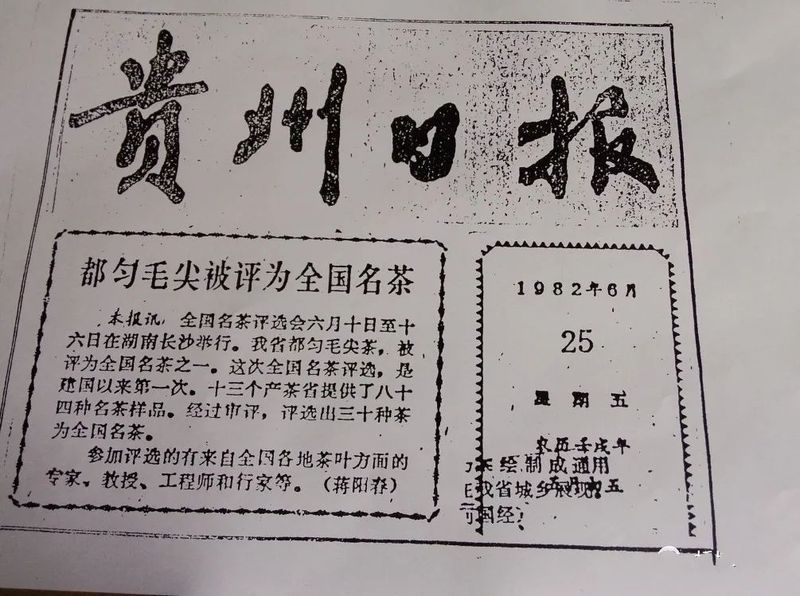 贵州日报
都匀毛尖被评为全国名茶
本报讯 全国名茶评选会六月十日至十
六日在湖南长沙举行。我省都匀毛尖茶,被
评为全国名茶之一。这次全国名茶评选,是
建国以来第一次。十三个产茶省提供了八十
四种名茶样品。经过审评,评选出三十种茶
为全国名茶。
参加评选的有来自全国各地茶叶方面的
专家、教授、工程师和行家等。(蒋阳春)
1982年6月
25
星期五
农历壬戌年
绘制成通用
我省城乡
国经
五